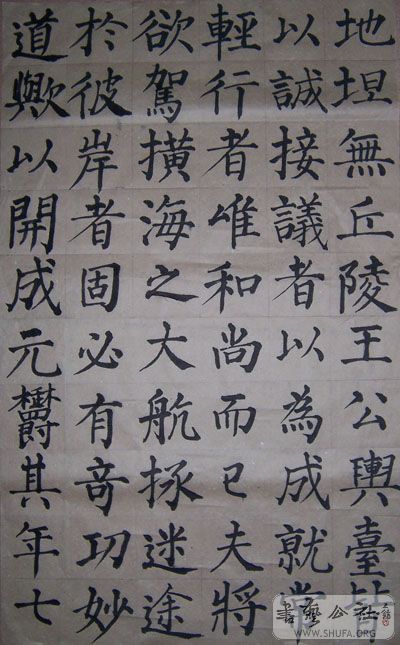 地坦無丘陵王公輿臺皆
以誠接議者以為成就常
輕行者唯和尚而已夫將
欲駕撗海之大航拯迷途
於彼岸者固必有竒功妙
道歟以開成元其年七
書藝公社
WWW.SHUFA.ORG